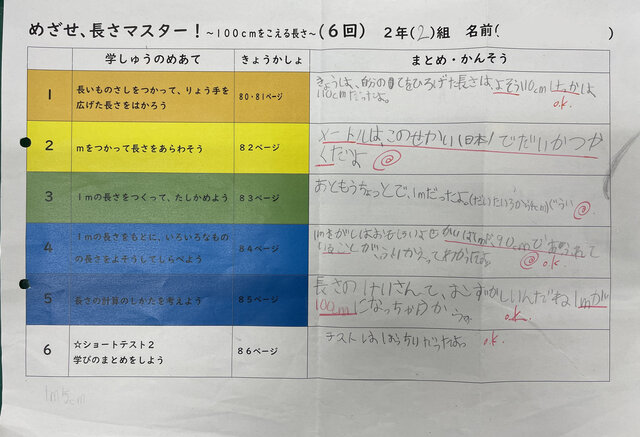 めざせ、長さマスター！~100cmをこえる長さ~(6回) 2年(2)組 名前( )
学しゅうのめあて きょうかしょ まとめ・かんそう
1 長いものさしをつかって、りょう手を広げた長さをはかろう 80・81ページ
きょうは、自分の てをひろげた長さは、よそう110cm
110cmだったよ。 o.k
2 mをつかって長さをあらわそう 82ページ
メートルは、このせかい(日本)でだいかつやくだよ
3 1mの長さをつくって、たしかめよう 83ページ
おともうちょっとで、1mだったよ。
4 1mの長さをもとに、いろいろなものの長さをよそうしてしらべよう 84ページ
1mをがしはおもしろいよ 90cm
o.k
5 長さの計算のしかたを考えよう 85ページ
長さのけいさんて、まじずかしいんだね1mが
100cmになっちゃうから
o.k
6 ☆ショートテスト2
学びのまとめをしよう 86ページ
テストはばっちりだったよっ o.k
1m5cm